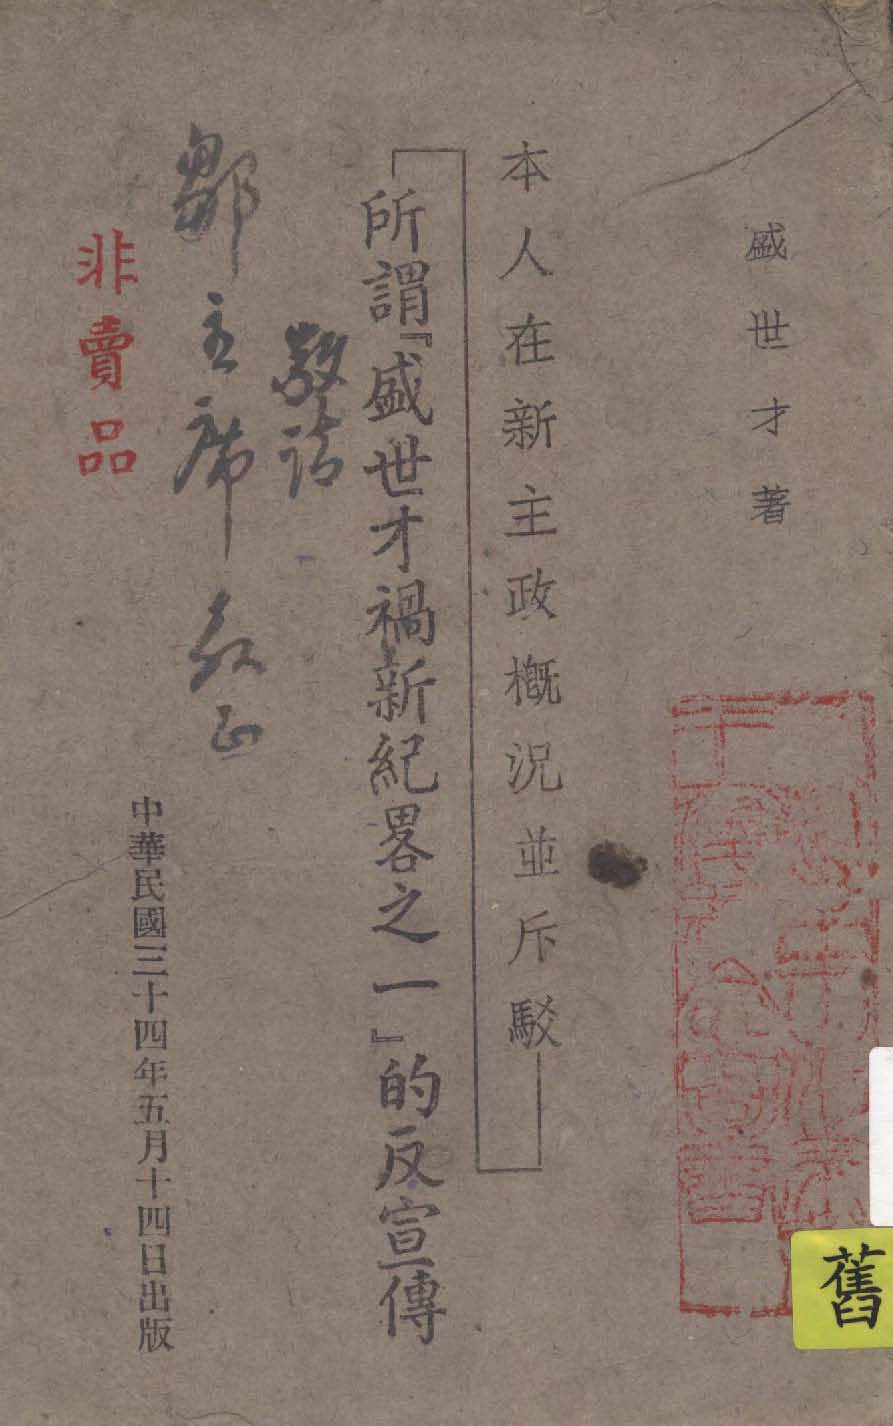 盛世才著
本人在新主政概況並斥駁
所謂『盛世才禍新紀畧之一』的反宣傳
敬請
鄒主席教正
非賣品
中華民國三十四年五月十四日出版
舊